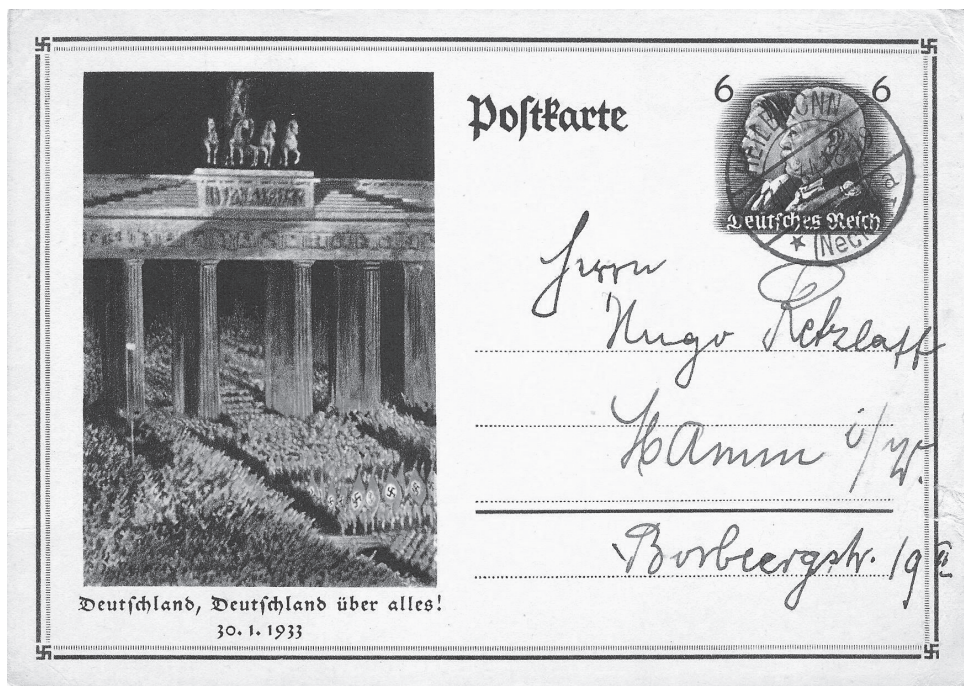 Postkarte
6 6
Deutsches Reich
HEILBRONN
(Neckar)
a
Herrn
Hugo Retzlaff
Hamm i/W.
19 II
Deutschland, Deutschland über alles!
30. 1. 1933